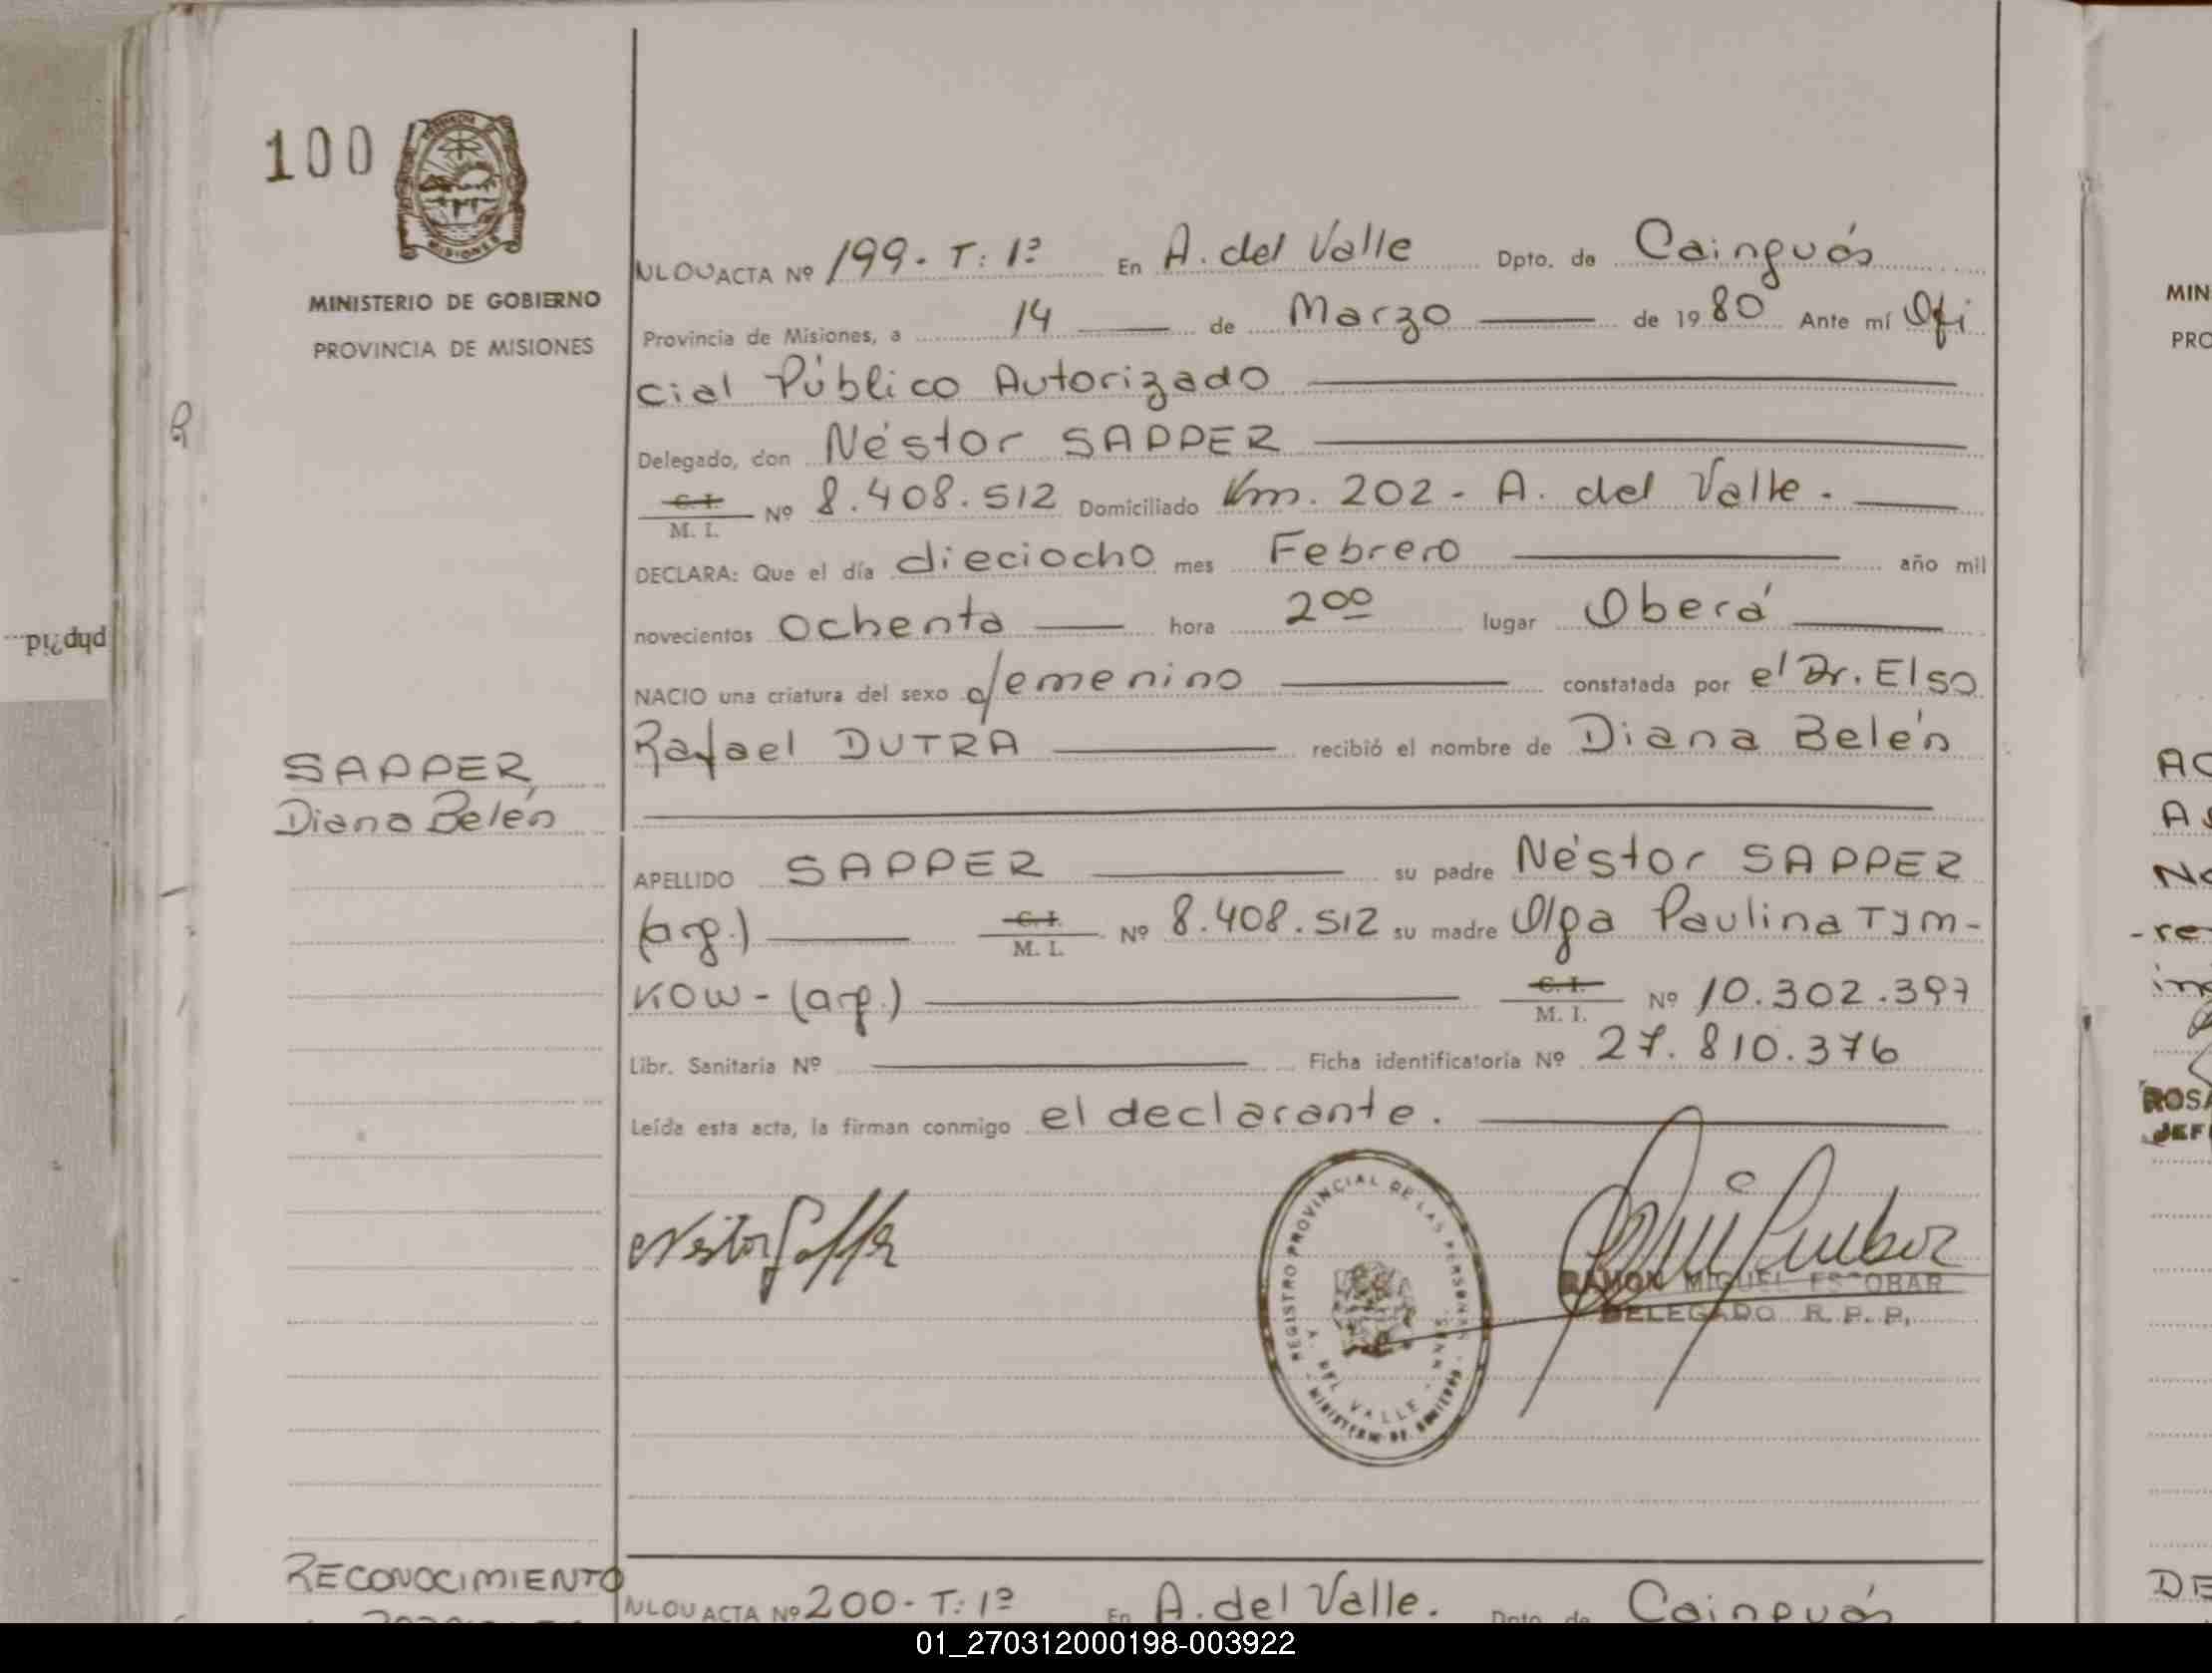 100
MINISTERIO DE GOBIERNO
PROVINCIA DE MISIONES
ACTA Nº 199. T: 1º En A. del Valle Dpto. de Cainguás
Provincia de Misiones, a 14 de Marzo de 1980 Ante mí Ofi
cial Público Autorizado
Delegado, don Néstor SAPPER
C. I. M. I. Nº 8.408.512 Domiciliado Km. 202 - A. del Valle.
DECLARA: Que el día dieciocho mes Febrero año mil
novecientos ochenta hora 2⁰⁰ lugar Oberá
NACIO una criatura del sexo femenino constatada por el Dr. Elso
Rafael DUTRA recibió el nombre de Diana Belén
SAPPER,
Diana Belén
APELLIDO SAPPER su padre Néstor SAPPER
(arg.) C. I. M. I. Nº 8.408.512 su madre Olga Paulina TYM-
KOW - (arg.) C. I. M. I. Nº 10.302.397
Libr. Sanitaria Nº Ficha identificatoria Nº 27.810.376
Leída esta acta, la firman conmigo el declarante.
Néstor Sapper
REGISTRO PROVINCIAL DE LAS PERSONAS
A. DEL VALLE
MINISTERIO DE GOBIERNO
RAMON MIGUEL ESCOBAR
DELEGADO R. P. P.
RECONOCIMIENTO
ACTA Nº 200 - T: 1º En A. del Valle. Dpto. de Cainguás
php?id...
MIN
PRO
AC
A
No
-re
ROSA
JEF
DE
01_270312000198-003922